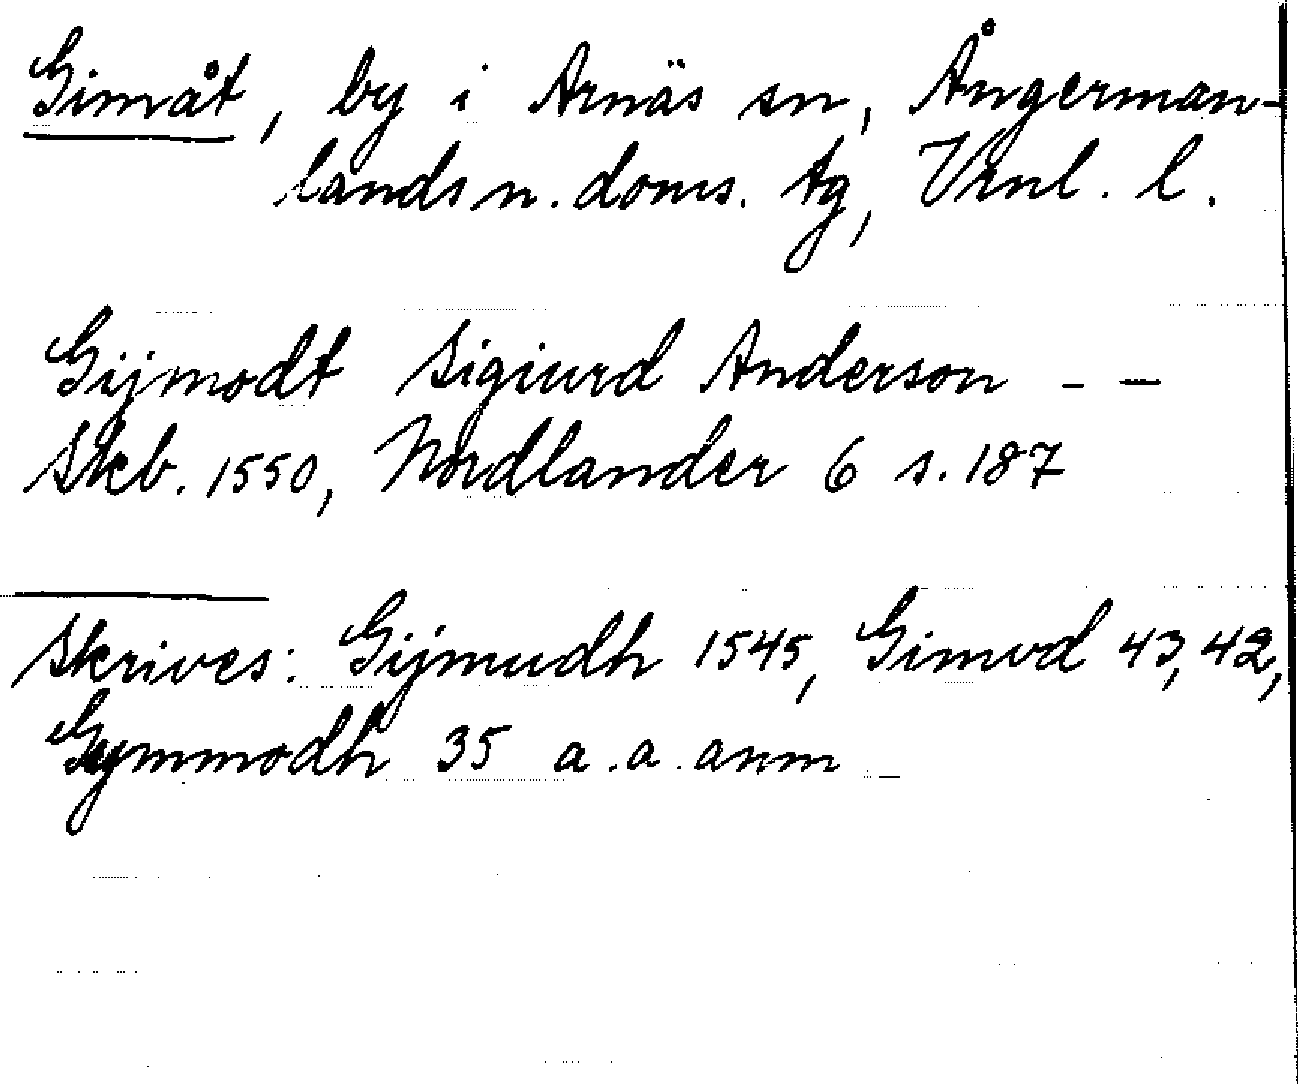 Gimåt, by i Arnäs sn, Ångerman-
lands n. doms. tg, Vrnl. l.
Gijmodt Sigiurd Anderson - -
Skb. 1550, Nordlander 6 s. 187
Skrives: Gijmudh 1545, Gimod 43, 42,
Gymmodh 35 a. a. anm